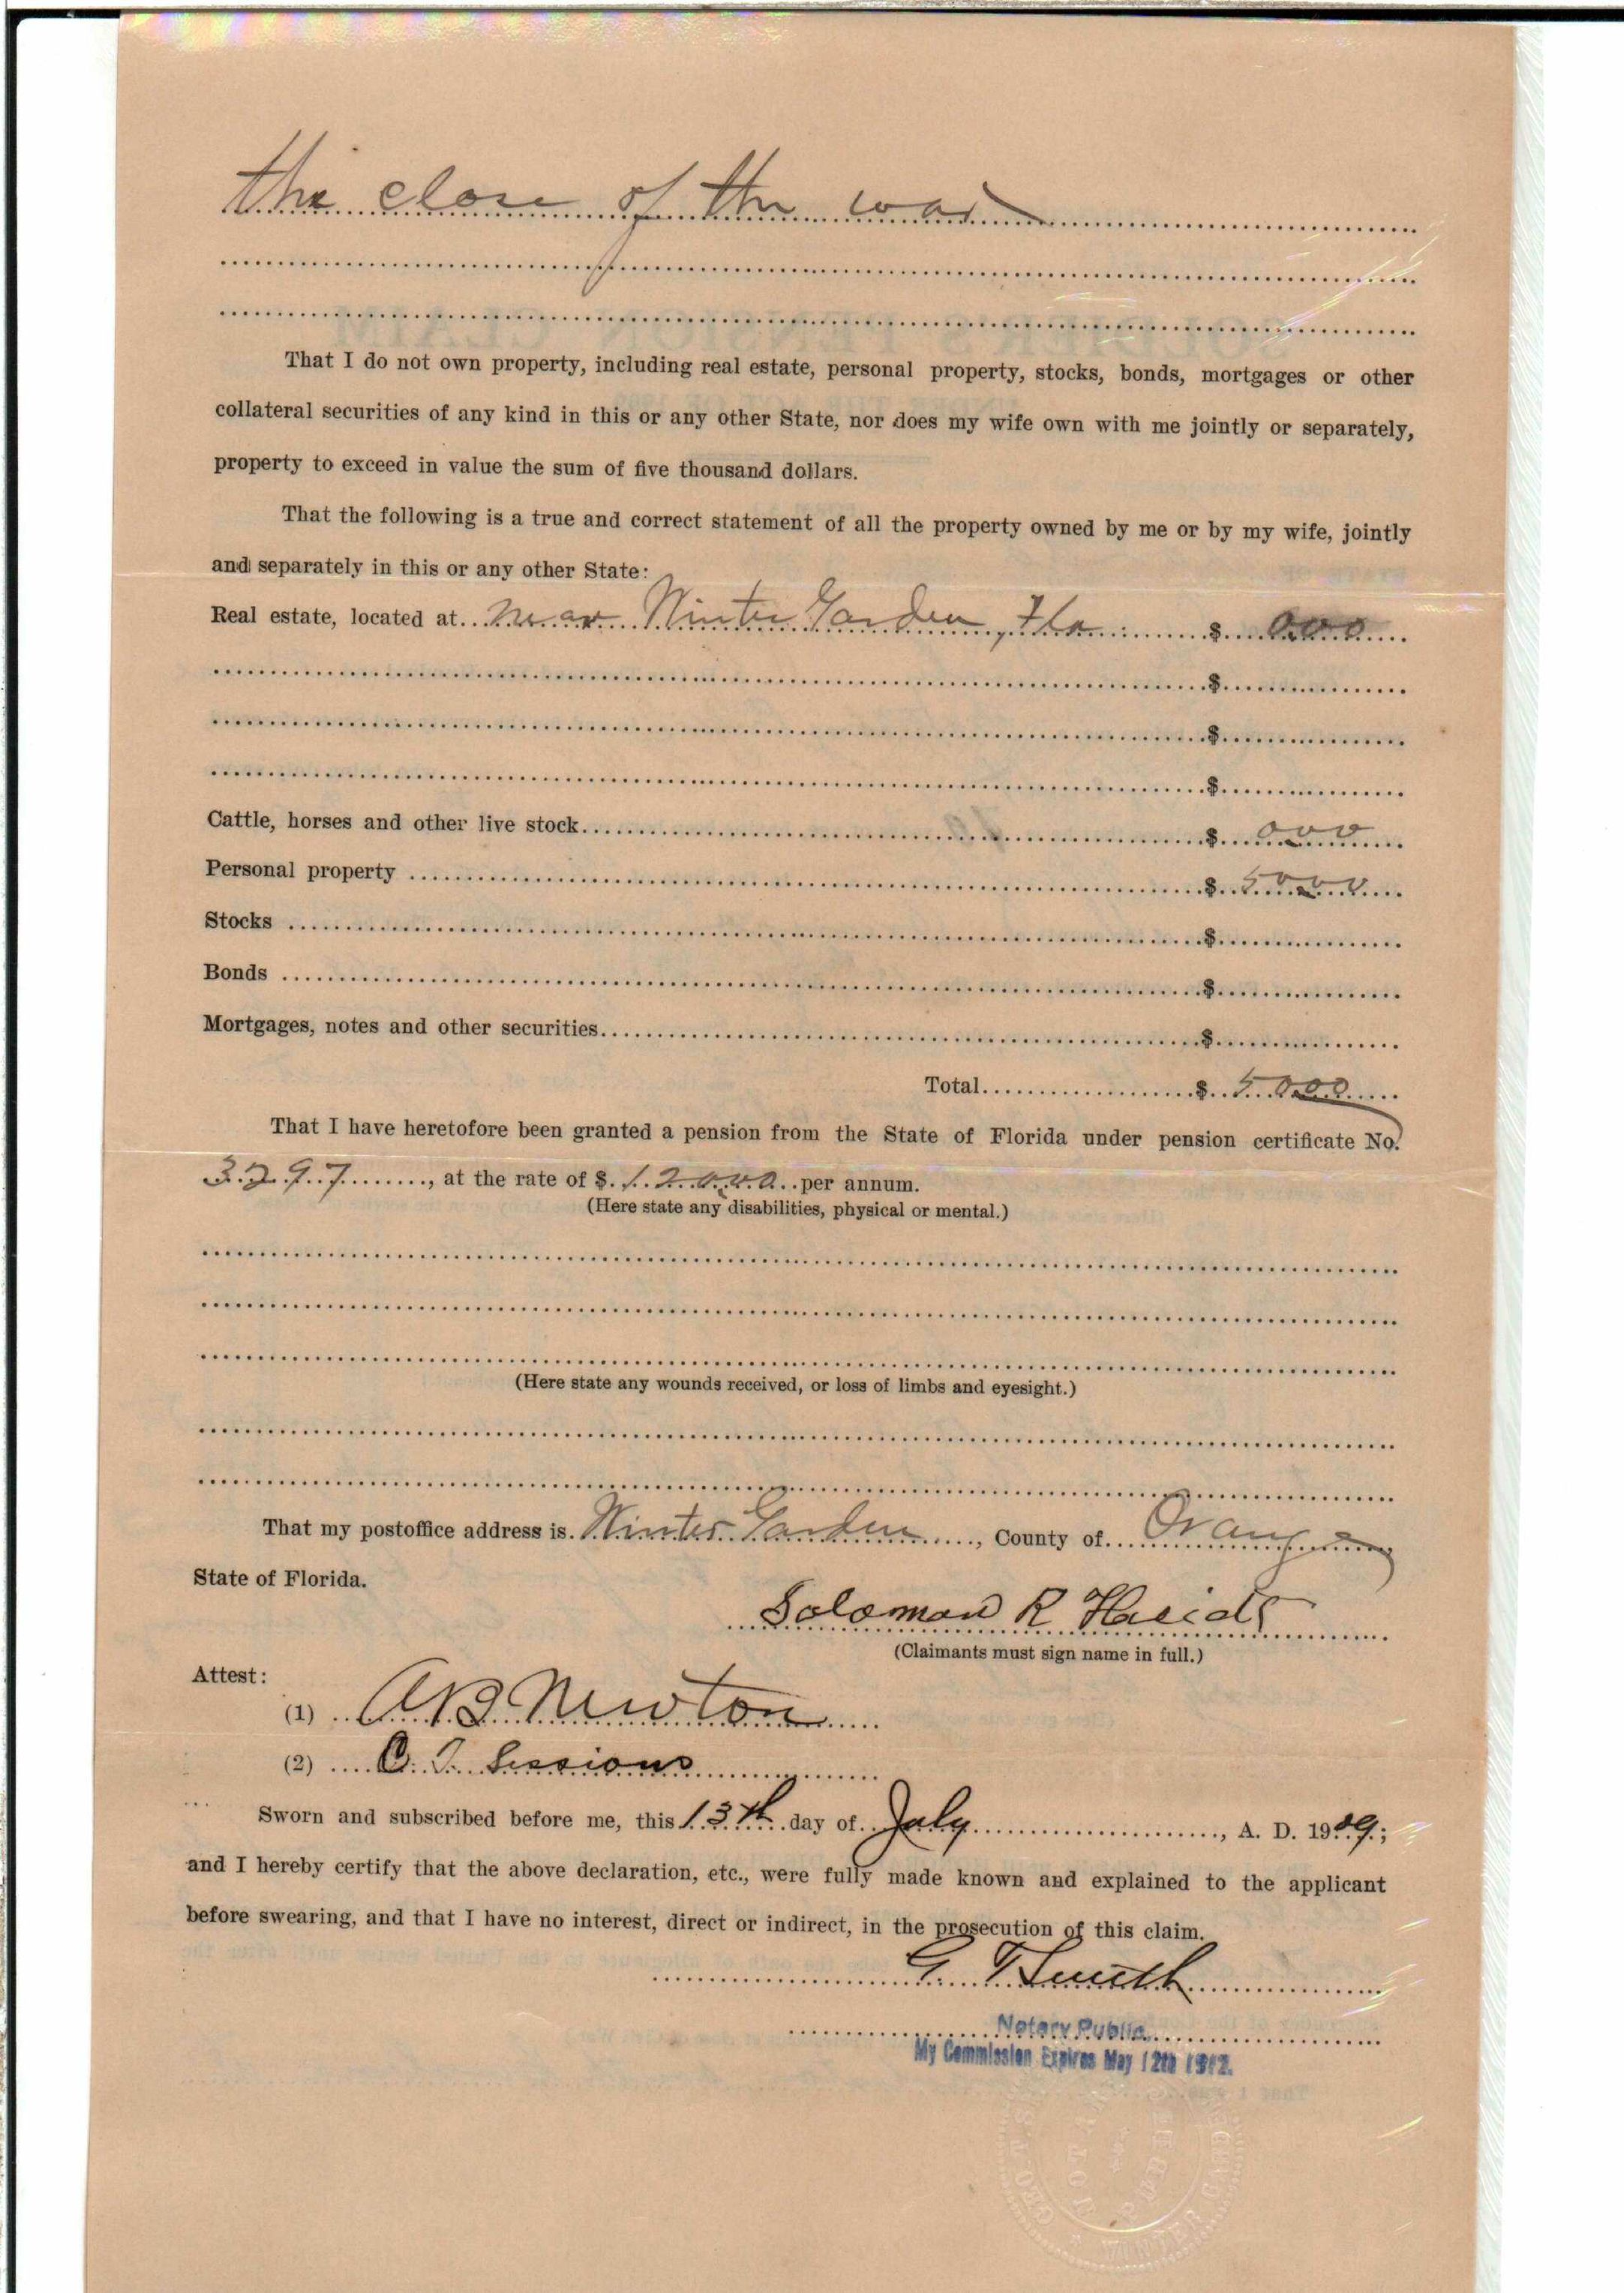 the close of the war
That I do not own property, including real estate, personal property, stocks, bonds, mortgages or other
collateral securities of any kind in this or any other State, nor does my wife own with me jointly or separately,
property to exceed in value the sum of five thousand dollars.
That the following is a true and correct statement of all the property owned by me or by my wife, jointly
and separately in this or any other State:
Real estate, located at near Winter Garden, Fla $ 000
$
$
$
Cattle, horses and other live stock $ 000
Personal property $ 5000
Stocks $
Bonds $
Mortgages, notes and other securities $
Total $ 5000
That I have heretofore been granted a pension from the State of Florida under pension certificate No.
3297, at the rate of $ 12000 per annum.
(Here state any disabilities, physical or mental.)
(Here state any wounds received, or loss of limbs and eyesight.)
That my postoffice address is Winter Garden, County of Orange
State of Florida.
Soloman R
(Claimants must sign name in full.)
Attest:
(1) A B Newton
(2) C. T. Sessions
Sworn and subscribed before me, this 13th day of July, A. D. 1909;
and I hereby certify that the above declaration, etc., were fully made known and explained to the applicant
before swearing, and that I have no interest, direct or indirect, in the prosecution of this claim.
G. T. Smith
Notary Public
My Commission Expires May 12th 1912.